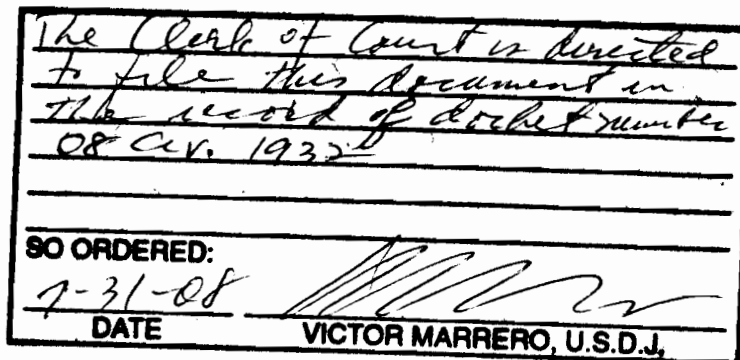 The Clerk of Court is directed
to file this document in
the record of docket number
08 Civ. 1932
SO ORDERED:
7-31-08
DATE VICTOR MARRERO, U.S.D.J.